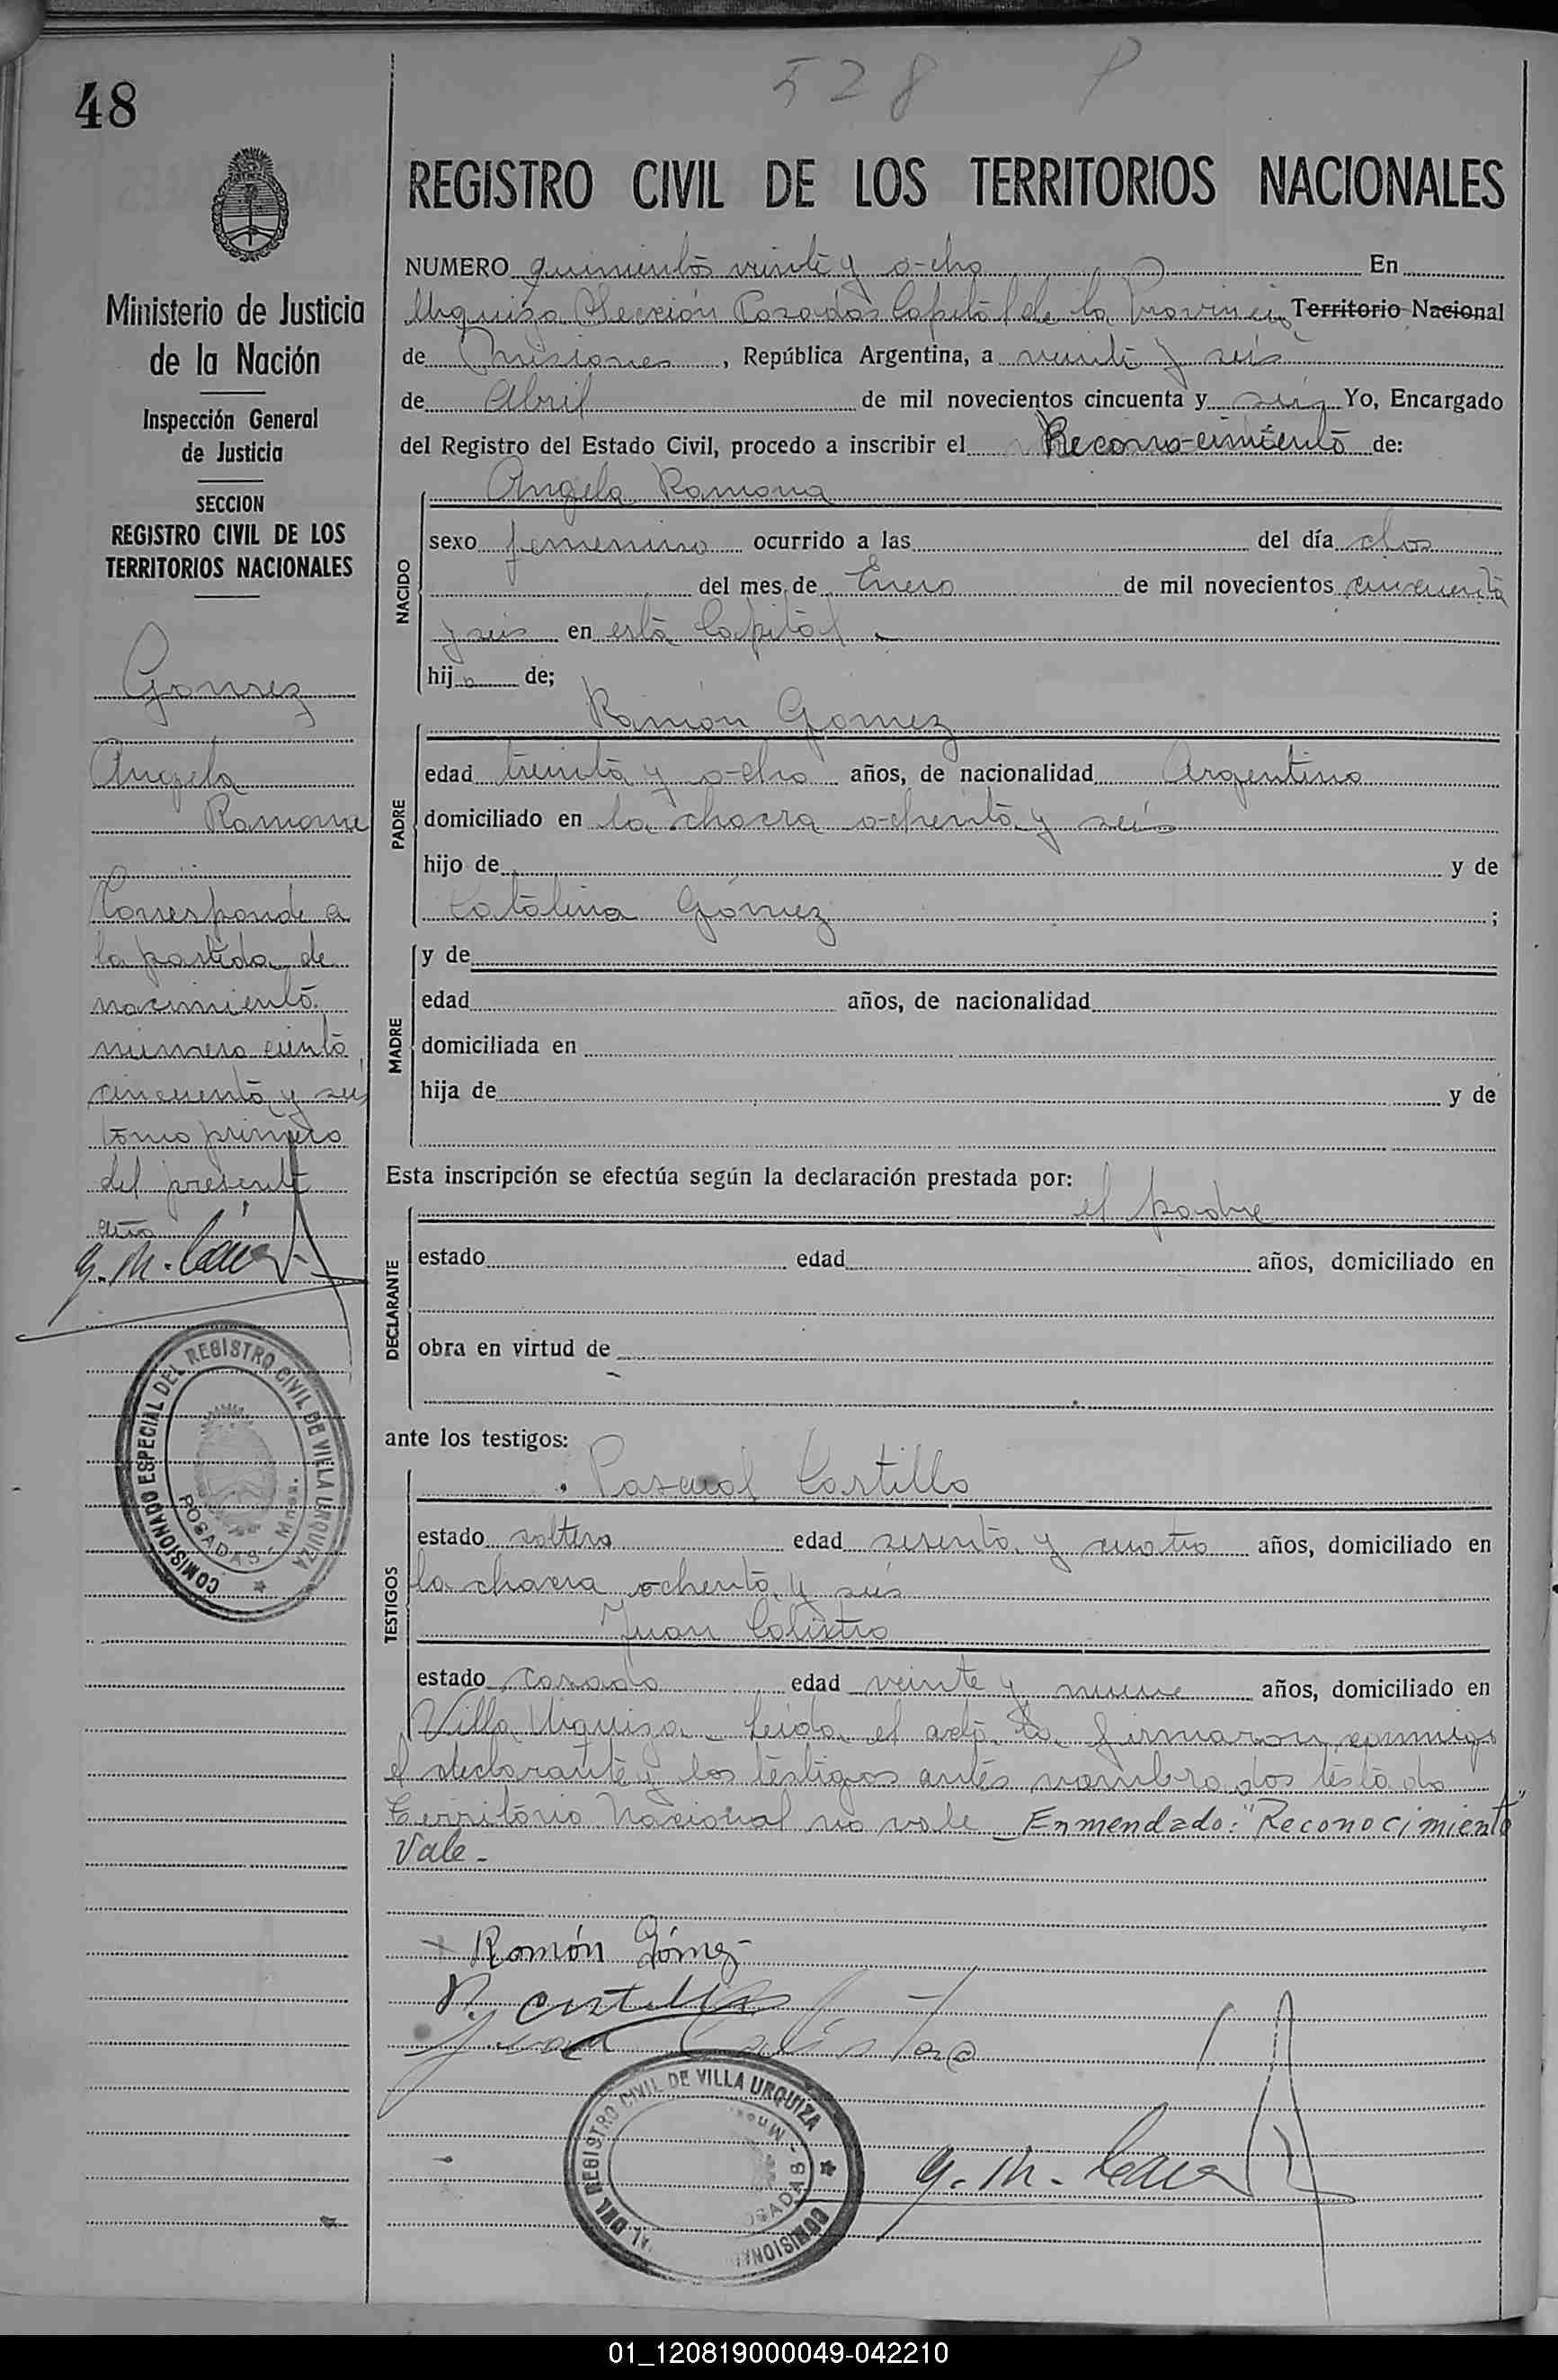 528 P
48
REGISTRO CIVIL DE LOS TERRITORIOS NACIONALES
Ministerio de Justicia
de la Nación
Inspección General
de Justicia
SECCION
REGISTRO CIVIL DE LOS
TERRITORIOS NACIONALES
Gomez
Angela
Ramona
Corresponde a
la partida de
nacimiento
numero ciento
cincuenta y seis
tomo primero
del presente
año
COMISIONADO ESPECIAL DEL REGISTRO CIVIL DE VILLA URQUIZA
POSADAS - Mnes.
NUMERO quinientos veinte y ocho En
Urquiza Sección Posadas Capital de la Provincia Territorio Nacional
de Misiones, República Argentina, a veinte y seis
de Abril de mil novecientos cincuenta y seis Yo, Encargado
del Registro del Estado Civil, procedo a inscribir el Reconocimiento de:
NACIDO
Angela Ramona
sexo femenino ocurrido a las del día dos
del mes de Enero de mil novecientos cincuenta
y seis en esta Capital
hija de;
PADRE
Ramón Gomez
edad treinta y ocho años, de nacionalidad Argentino
domiciliado en la chacra ochenta y seis
hijo de y de
Catalina Gómez ;
MADRE
y de
edad años, de nacionalidad
domiciliada en
hija de y de
Esta inscripción se efectúa según la declaración prestada por:
el padre
DECLARANTE
estado edad años, domiciliado en
obra en virtud de
ante los testigos:
TESTIGOS
Pascual Castillo
estado soltero edad sesenta y cuatro años, domiciliado en
la chacra ochenta y seis
Juan Calixtro
estado casado edad veinte y nueve años, domiciliado en
Villa Urquiza. Leida el acta la firmaron conmigo
el declarante y los testigos antes nombrados testado
Territorio Nacional no vale Enmendado: "Reconocimiento"
Vale -
Ramón Gómez
P. Castillo
Juan
REGISTRO CIVIL DE VILLA URQUIZA
POSADAS - Mnes.
G. M.
01_120819000049-042210